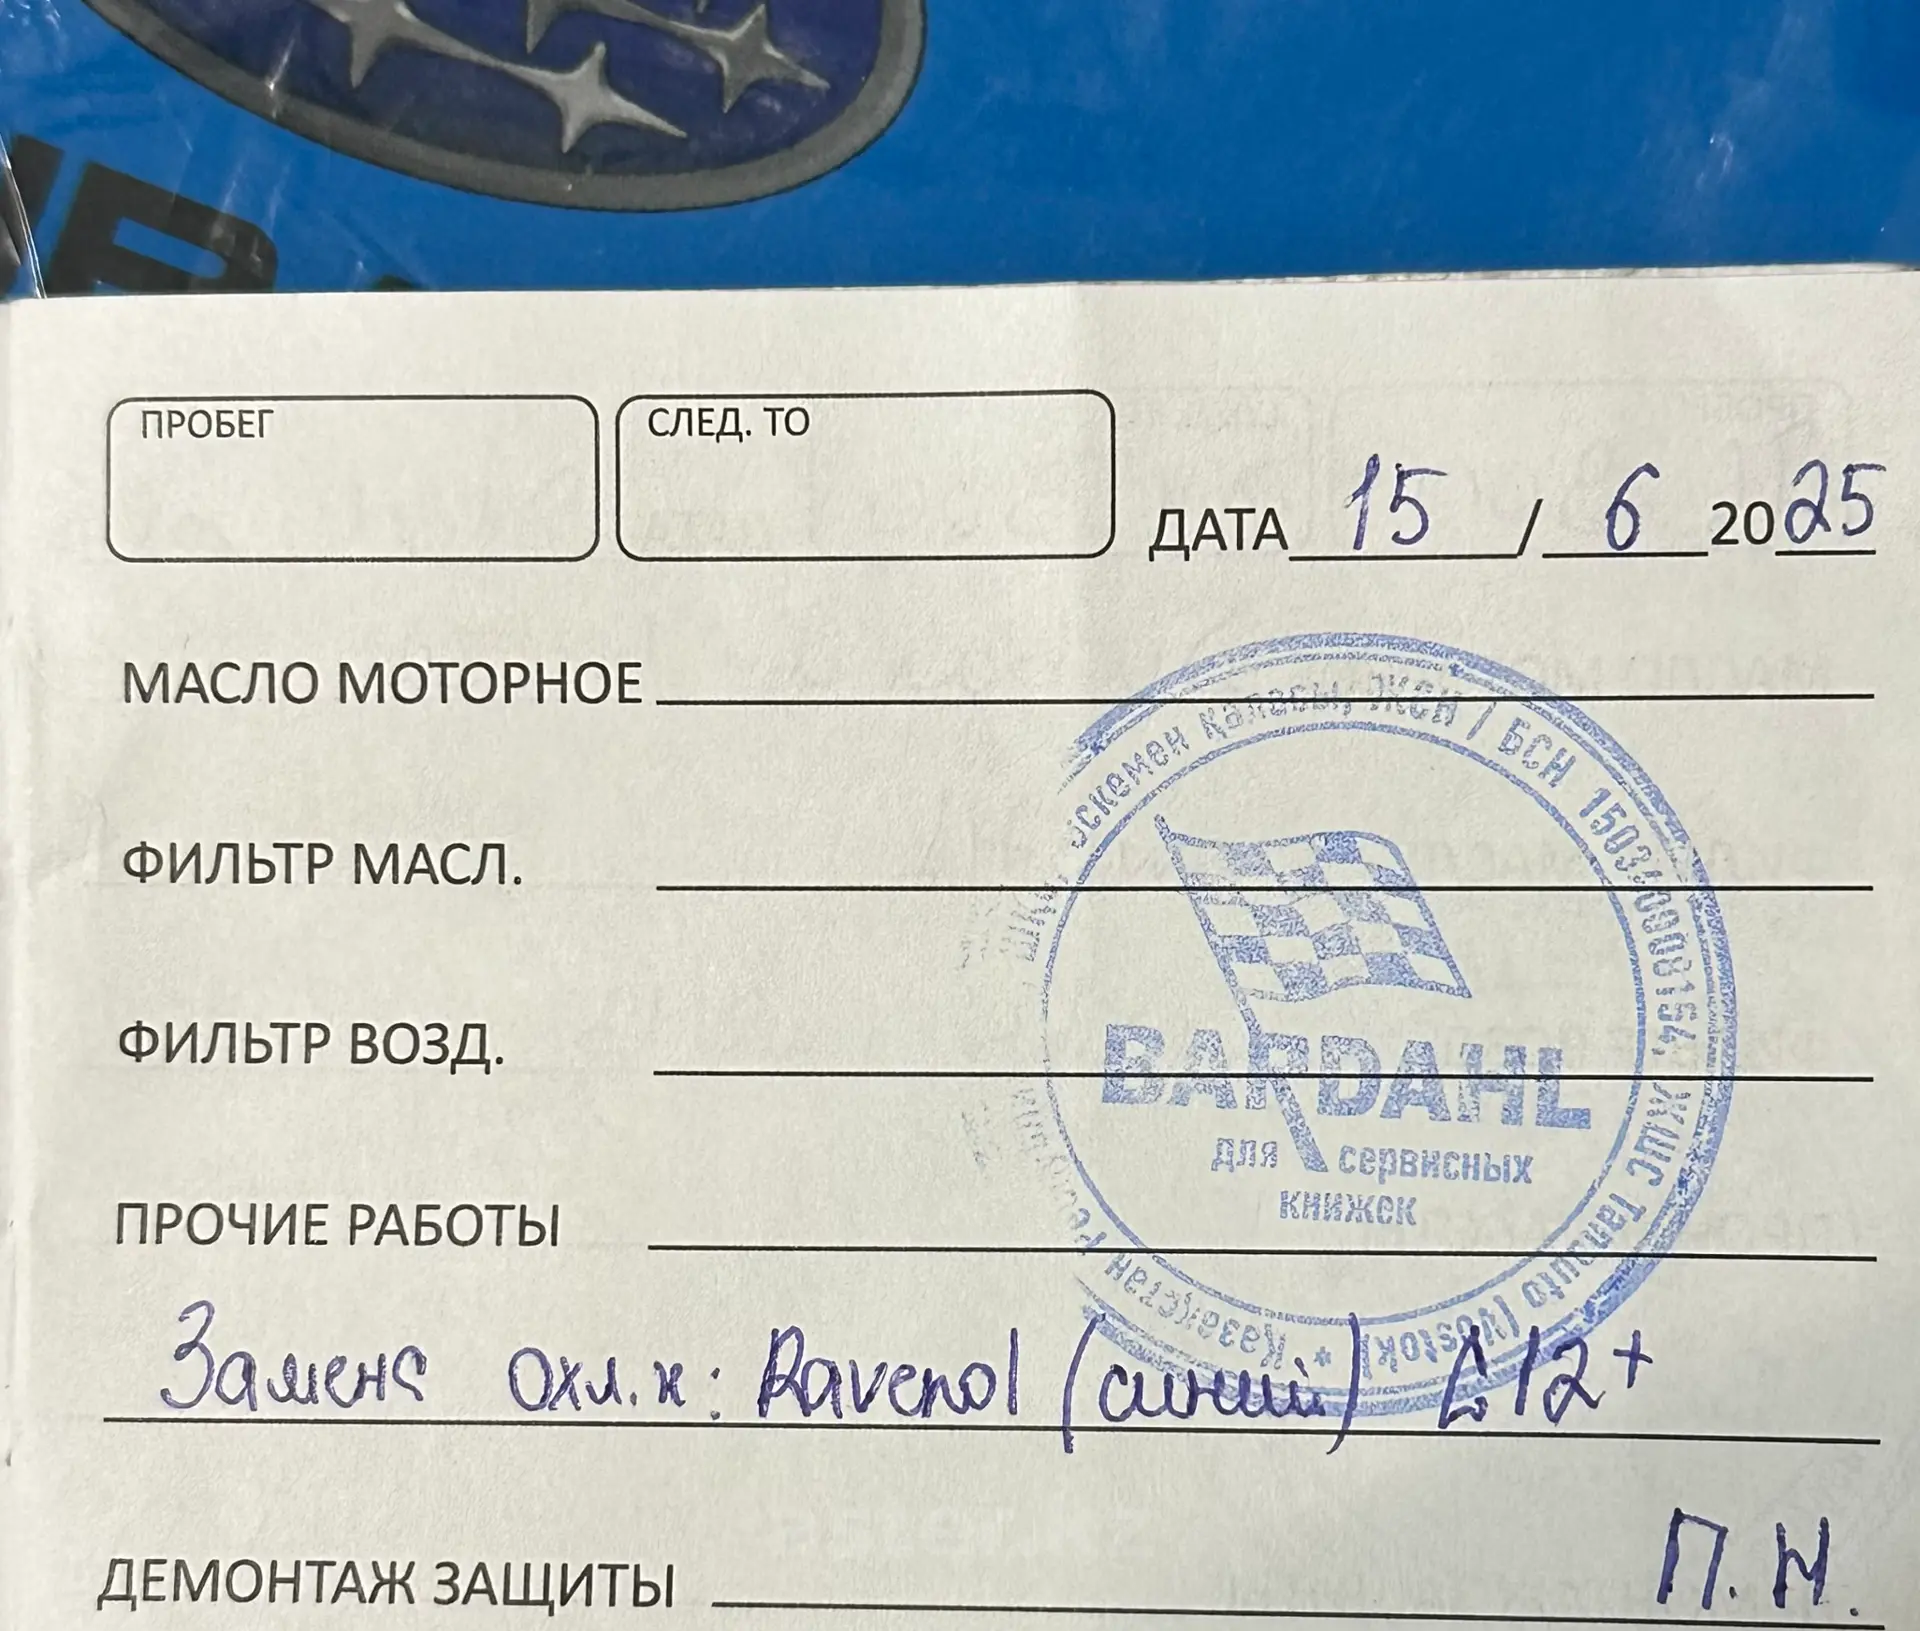 ПРОБЕГ
СЛЕД. ТО
ДАТА 15 / 6 2025
МАСЛО МОТОРНОЕ
ФИЛЬТР МАСЛ.
ФИЛЬТР ВОЗД.
ПРОЧИЕ РАБОТЫ
Өскемен қаласы, ЖСН / БСН
ЖШС Tanauto (Vostok) * Қазақстан
BARDAHL
для сервисных
книжек
Замена охл. ж: Ravenol (синий) G12+
П.Н.
ДЕМОНТАЖ ЗАЩИТЫ